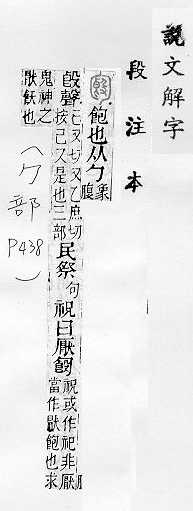 說文解字
段注本
飽也从勹象腹
𣪘聲己又切又乙庶切按己又是也三部民祭句祝曰厭匓祝或作祀非厭當作猒飽也求
鬼神之猒飫也
(勹部 P438)